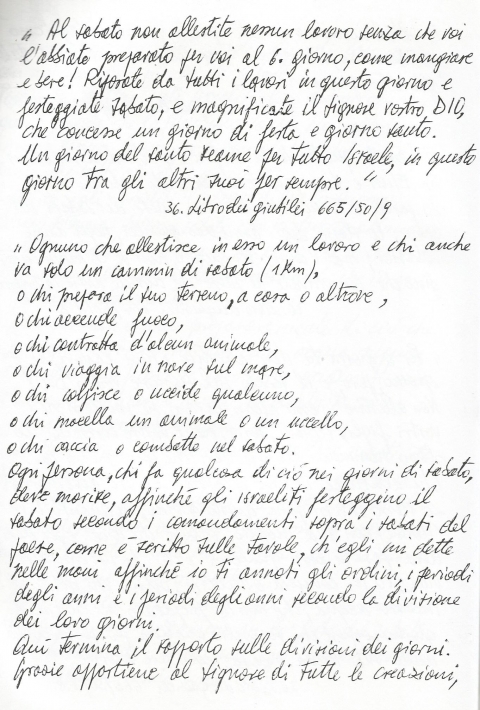 „ Al sabato non allestite nessun lavoro senza che voi
l'abbiate preparato per voi al 6. giorno, come mangiare
e bere! Riposate da tutti i lavori in questo giorno e
festeggiate sabato, e magnificate il signore vostro DIO,
che concesse un giorno di festa e giorno santo.
Un giorno del santo reame per tutto Israele, in questo
giorno tra gli altri suoi per sempre. "
36. Libro dei giubilei 665/50/9
„ Ognuno che allestisce in esso un lavoro e chi anche
va solo un cammin di sabato (1 km),
o chi prepara il suo terreno, a casa o altrove,
o chi accende fuoco,
o chi contratta d'alcun animale,
o chi viaggia in nave sul mare,
o chi colpisce o uccide qualcuno,
o chi macella un animale o un uccello,
o chi caccia o combatte nel sabato.
Ogni persona, chi fa qualcosa di ciò nei giorni di sabato,
deve morire, affinché gli israeliti festeggino il
sabato secondo i comandamenti sopra i sabati del
paese, come è scritto sulle tavole, ch'egli mi dette
nelle mani affinché io ti annoti gli ordini, i periodi
degli anni e i periodi degli anni secondo la divisione
dei loro giorni.
Qui termina il rapporto sulle divisioni dei giorni.
Grazie appartiene al signore di tutte le creazioni,